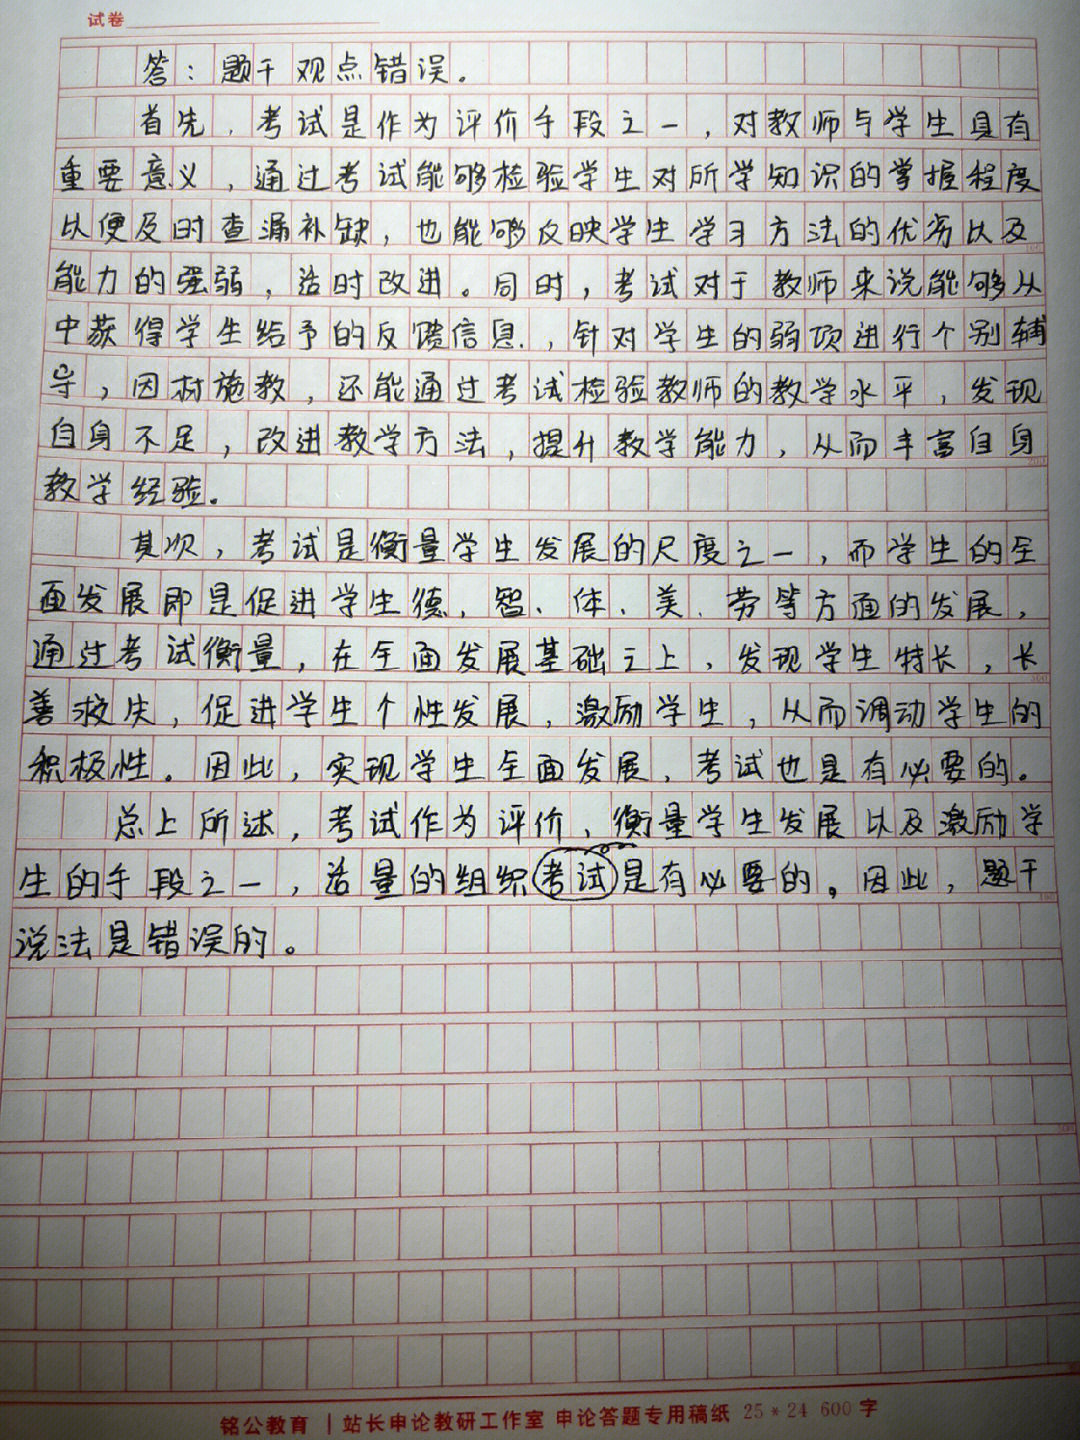 试卷
答：题干观点错误。
首先，考试是作为评价手段之一，对教师与学生具有
重要意义，通过考试能够检验学生对所学知识的掌握程度
以便及时查漏补缺，也能够反映学生学习方法的优劣以及
能力的强弱，适时改进。同时，考试对于教师来说能够从
中获得学生给予的反馈信息，针对学生的弱项进行个别辅
导，因材施教，还能通过考试检验教师的教学水平，发现
自身不足，改进教学方法，提升教学能力，从而丰富自身
教学经验。
其次，考试是衡量学生发展的尺度之一，而学生的全
面发展即是促进学生德、智、体、美、劳等方面的发展，
通过考试衡量，在全面发展基础之上，发现学生特长，长
善救失，促进学生个性发展，激励学生，从而调动学生的
积极性。因此，实现学生全面发展，考试也是有必要的。
总上所述，考试作为评价、衡量学生发展以及激励学
生的手段之一，适量的组织考试是有必要的。因此，题干
说法是错误的。
铭公教育 | 站长申论教研工作室 申论答题专用稿纸 25*24 600字